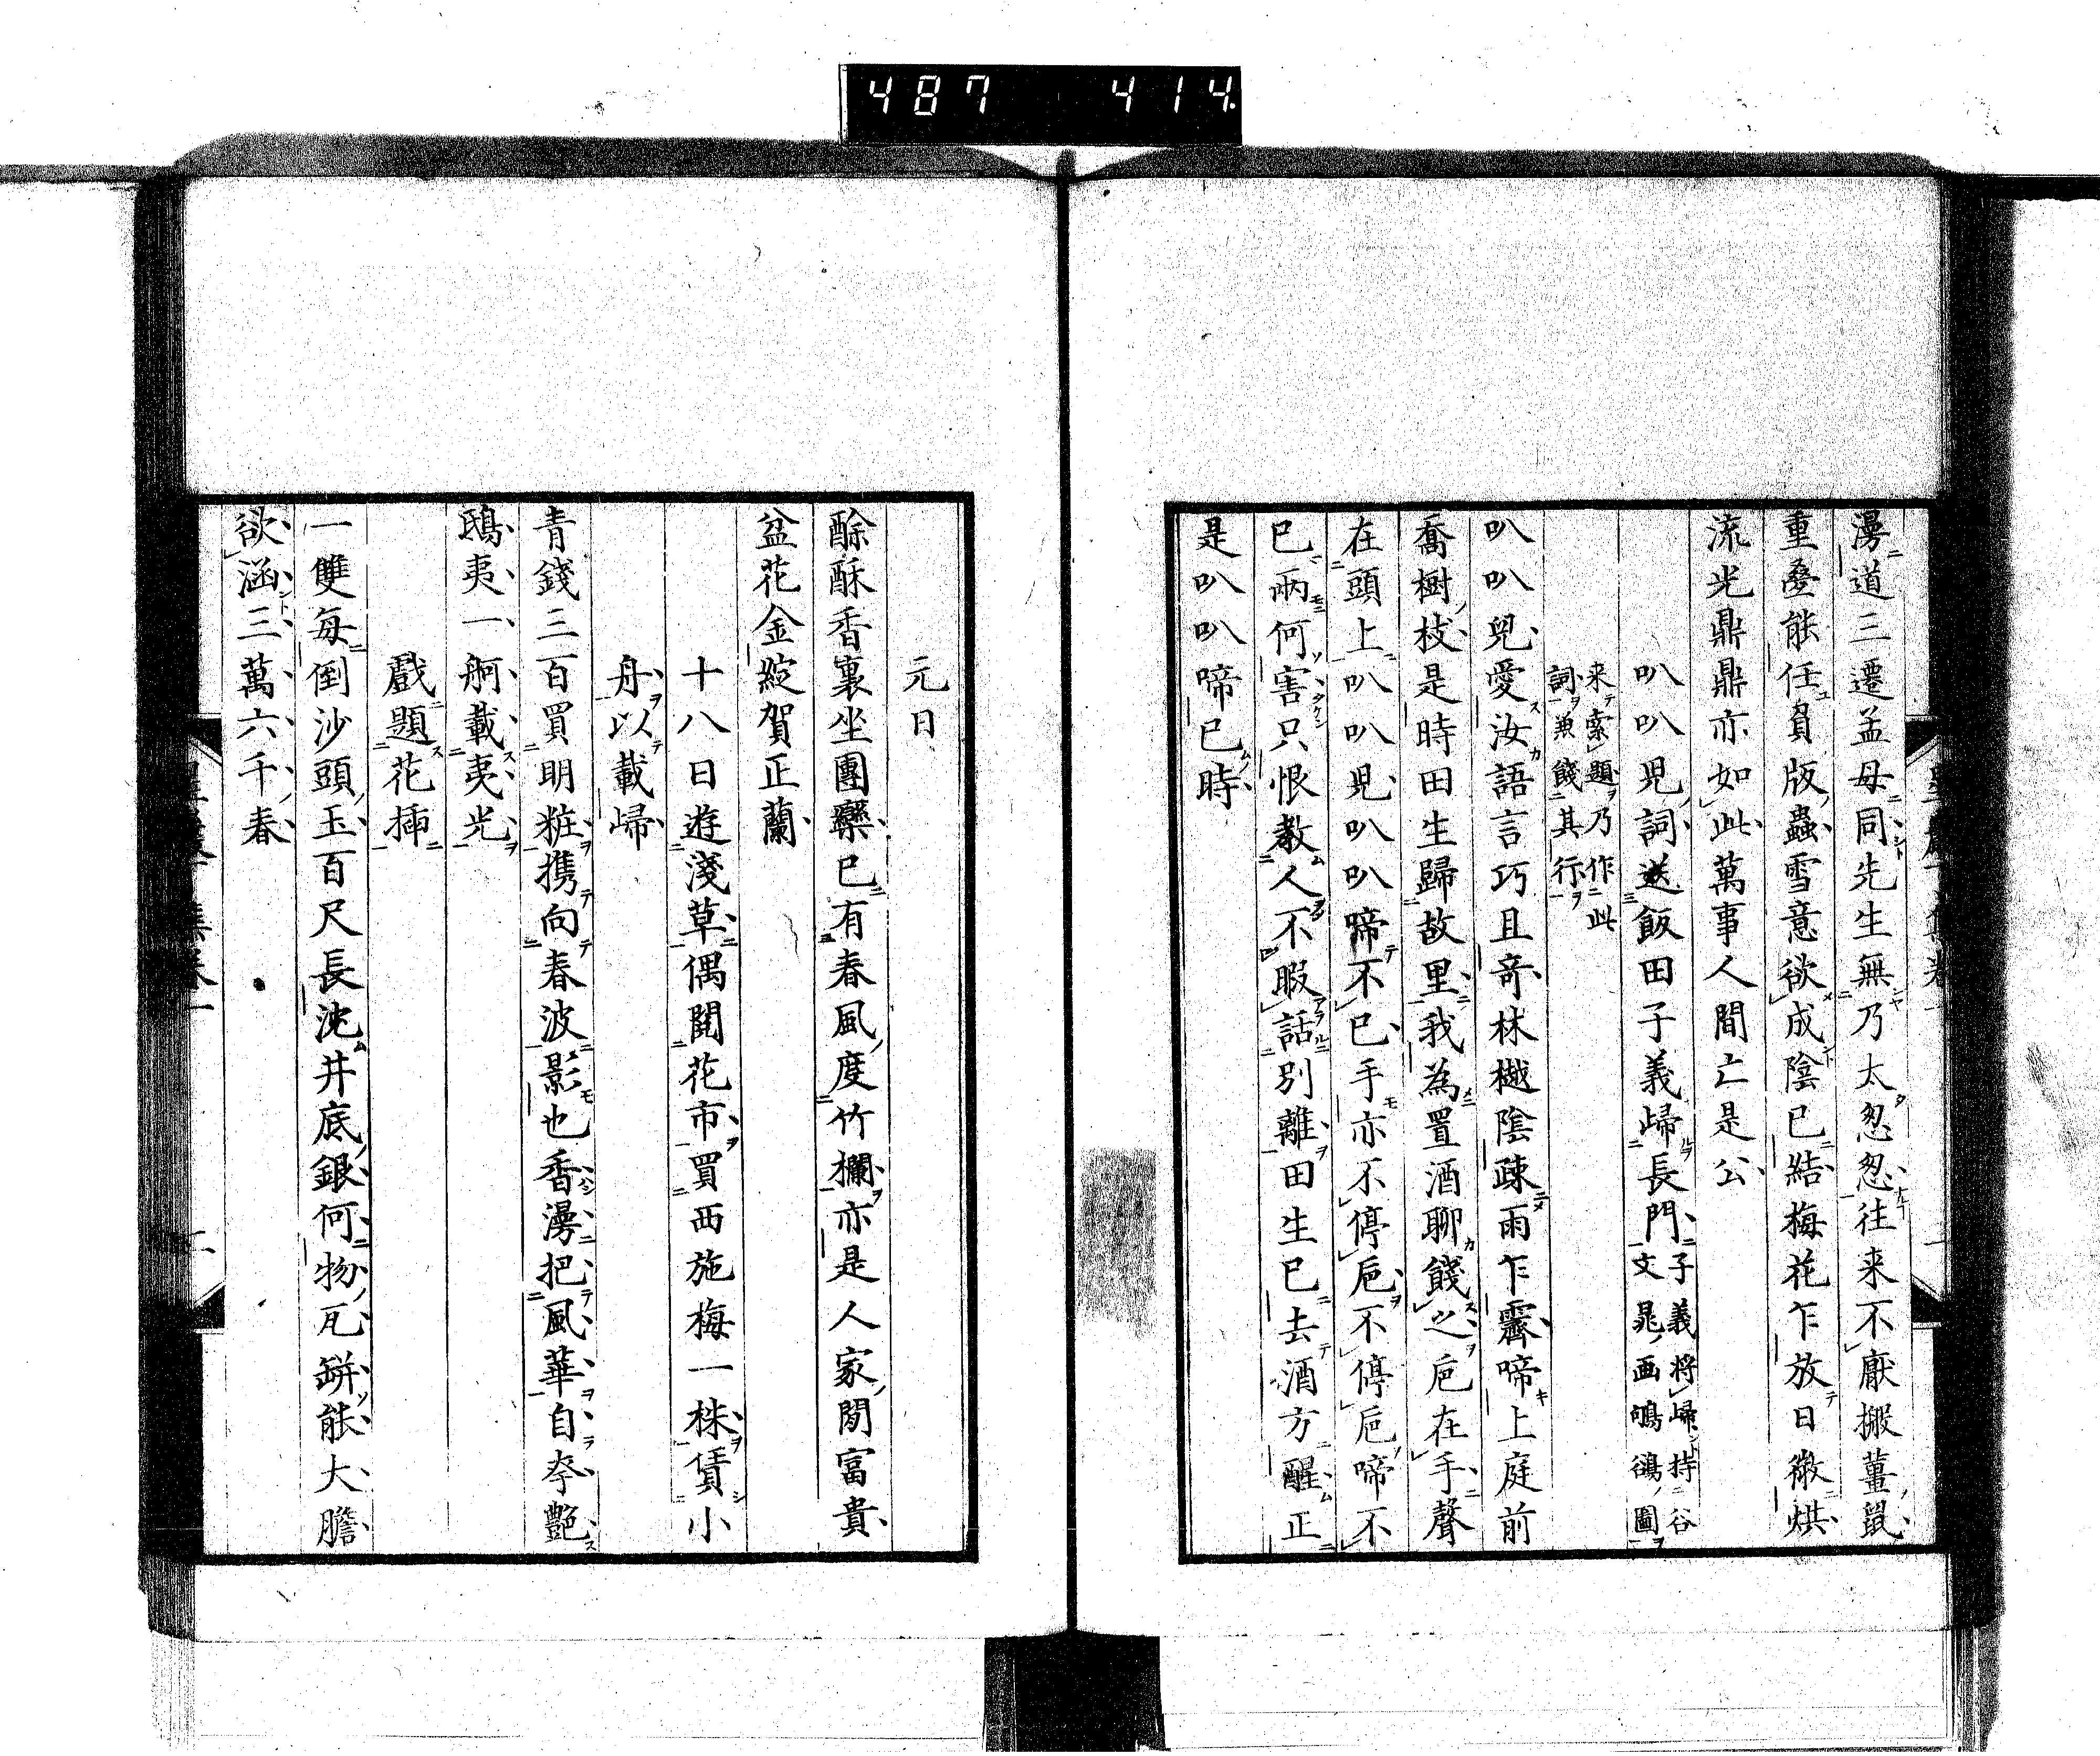 487 414
漫道三遷孟母同先生無乃太怱怱往来不厭搬薑鼠
重疊能任負版蟲雪意欲成陰已結梅花乍放日微烘
流光鼎鼎亦如此萬事人間亡是公
叭叭児詞送飯田子義歸長門子義將歸持谷
文晁画鳴鶴圖
来索題乃作此
詞兼餞其行
叭叭兒愛汝語言巧且奇林樾陰疎雨乍霽啼上庭前
喬樹枝是時田生歸故里我為置酒聊餞之巵在手聲
在頭上叭叭児叭叭啼不已手亦不停巵不停巵啼不
已兩何害只恨教人不暇話別離田生已去酒方醒正
是叭叭啼已時
元日
酴酥香裏坐團欒已有春風度竹欄亦是人家閒富貴
盆花金綻賀正蘭
十八日遊淺草偶閲花市買西施梅一株賃小
舟以載歸
青錢三百買明粧携向春波影也香漫把風華自夸艷
鴟夷一舸載夷光
戲題花挿
一雙每倒沙頭玉百尺長沈井底銀何物瓦缾能大膽
欲涵三萬六千春